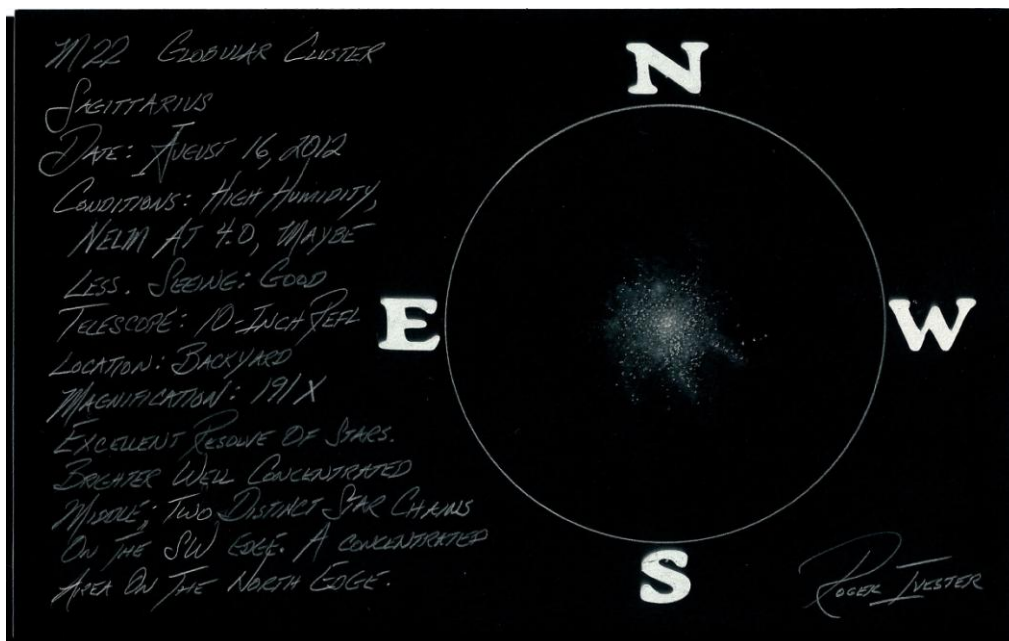 M22 GLOBULAR CLUSTER
SAGITTARIUS
DATE: AUGUST 16, 2012
CONDITIONS: HIGH HUMIDITY,
NELM AT 4.0, MAYBE
LESS. SEEING: GOOD
TELESCOPE: 10-INCH REFL
LOCATION: BACKYARD
MAGNIFICATION: 191X
EXCELLENT RESOLVE OF STARS.
BRIGHTER WELL CONCENTRATED
MIDDLE; TWO DISTINCT STAR CHAINS
ON THE SW EDGE. A CONCENTRATED
AREA ON THE NORTH EDGE.
N
E
W
S
ROGER IVESTER